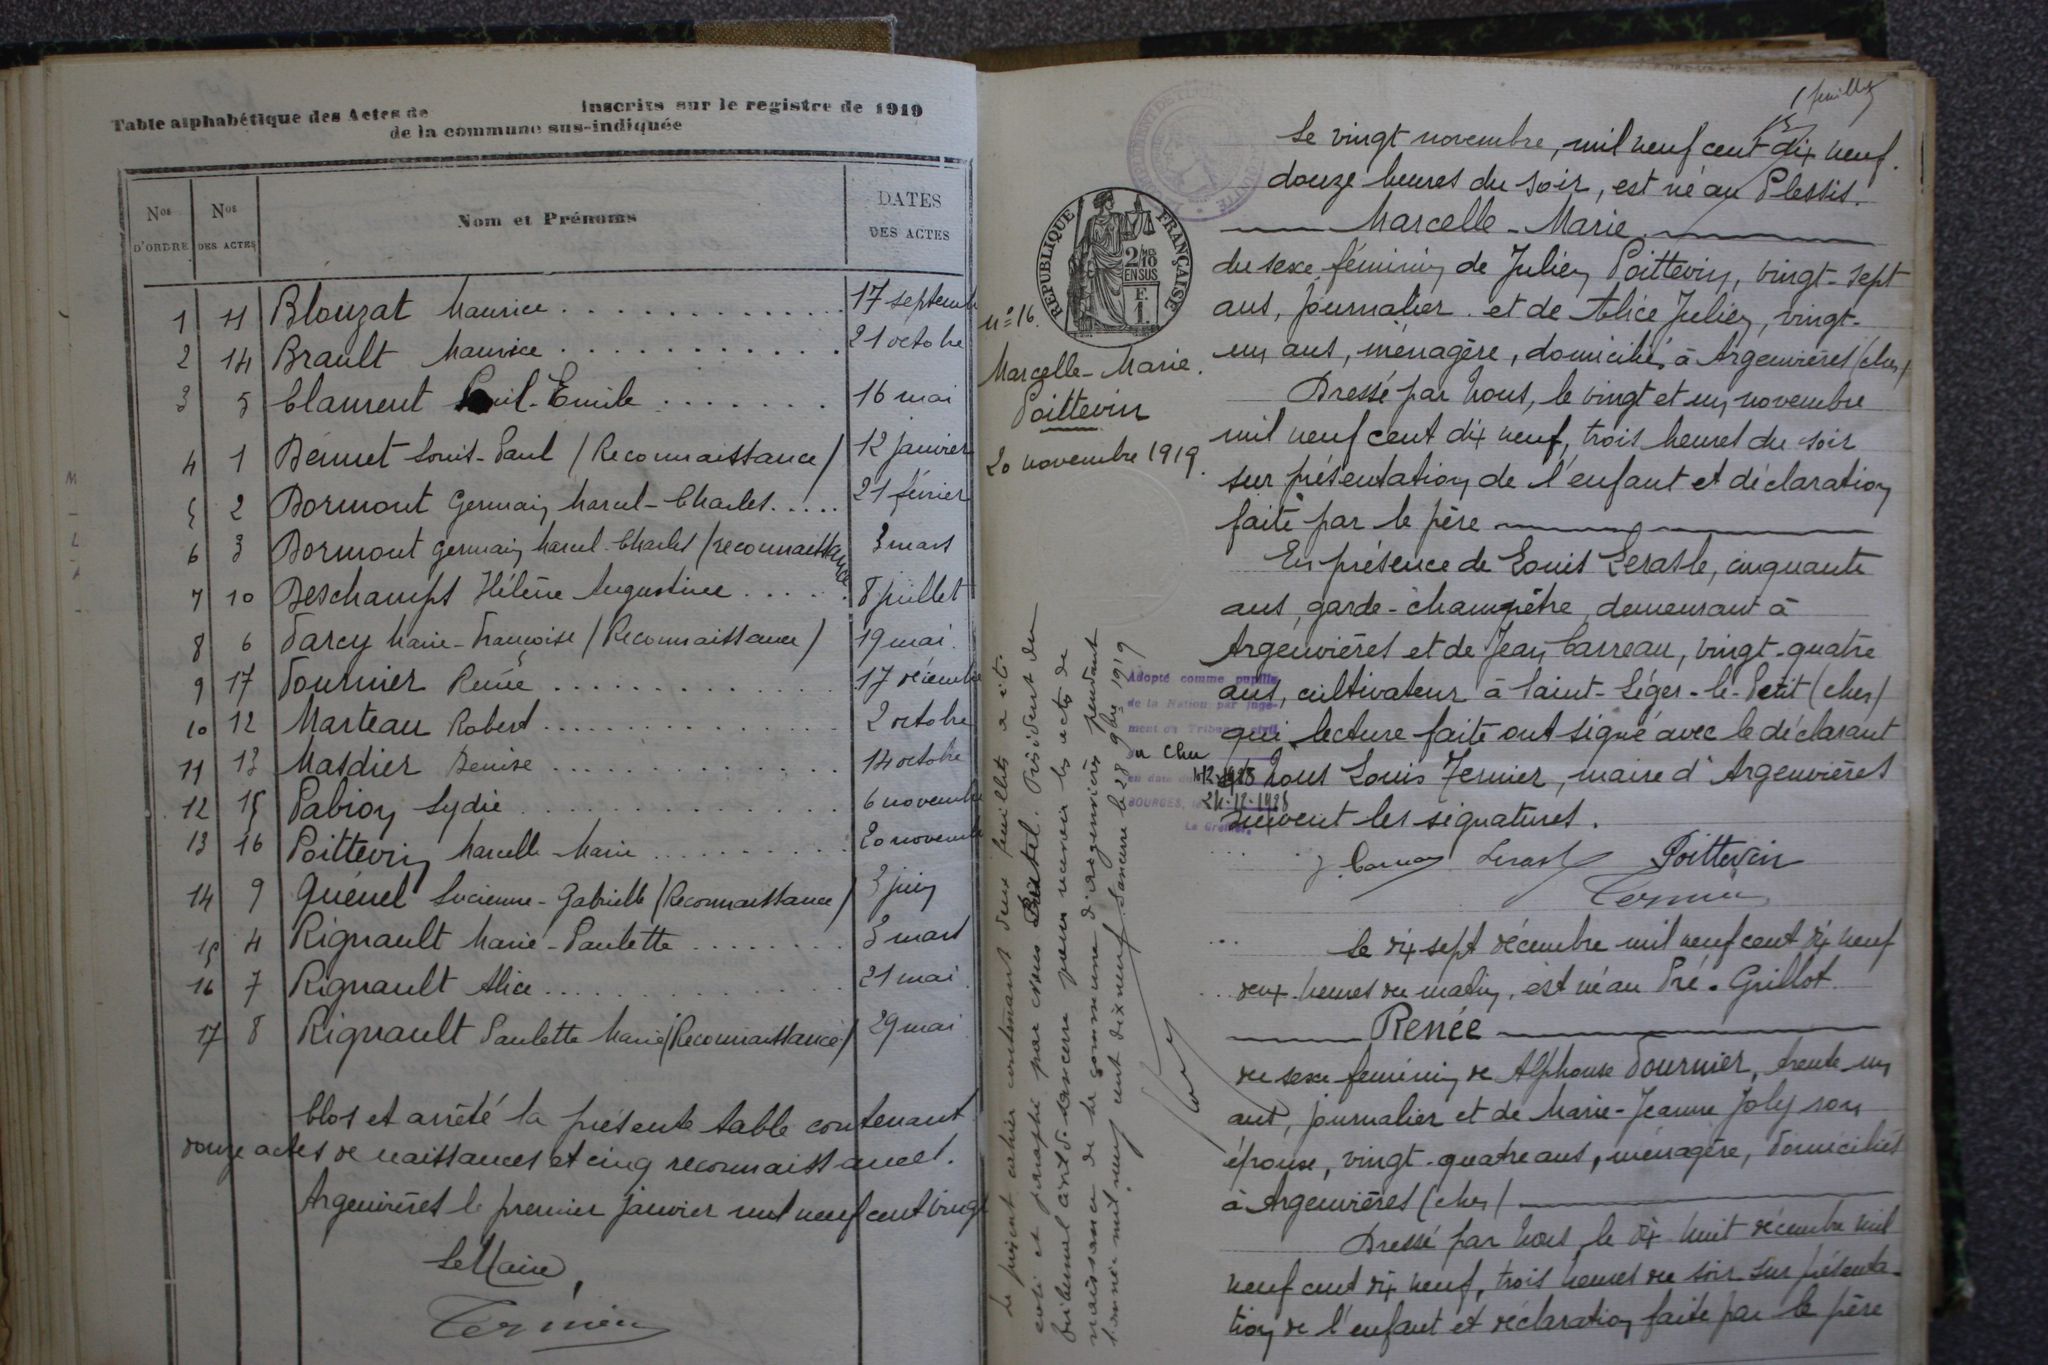 Table alphabétique des Actes de inscrits sur le registre de 1919
de la commune sus-indiquée
Nos D'ORDRE Nos DES ACTES Nom et Prénoms DATES DES ACTES
1 11 Blouzat Maurice 17 septemb
2 14 Brault Maurice 21 octobre
3 5 Clament Emile 16 mai
4 1 Dennet Louis-Paul (Reconnaissance) 12 janvier
5 2 Dormont Germain Marcel-Charles 21 février
6 3 Dormont Germain Marcel-Charles (reconnaissance 3 mars
7 10 Deschamps Hélène Augustine 8 juillet
8 6 Farcy Marie-Françoise (Reconnaissance) 19 mai
9 17 Fournier Renée 17 décembre
10 12 Marteau Robert 2 octobre
11 13 Masdier Denise 14 octobre
12 15 Pabion Lydie 6 novembre
13 16 Poittevin Marcelle-Marie 20 novembr
14 9 Quénel Lucienne-Gabrielle (Reconnaissance) 3 juin
15 4 Rignault Marie-Paulette 3 mars
16 7 Rignault Alice 21 mai
17 8 Rignault Paulette Marie (Reconnaissance) 29 mai
Clos et arrêté la présente table contenant
douze actes de naissances et cinq reconnaissances.
Argenvières le premier janvier mil neuf cent vingt
Le Maire,
Ternier
REPUBLIQUE FRANÇAISE
2/10 EN SUS
F. 1.
n° 16.
Marcelle-Marie.
Poittevin
20 novembre 1919.
Le présent cahier contenant deux feuillets a été
coté et paraphé par nous Président du
tribunal civil de Sancerre pour recevoir les actes de
naissance de la commune d'Argenvières pendant
l'année mil neuf cent dix neuf Sancerre le 28 9bre 1919
Adopté comme pupille
de la Nation par juge-
ment du Tribunal civil
du Cher
en date du
BOURGES, le 24-12-1928
Le Greffier
1 feuillet
Le vingt novembre, mil neuf cent dix neuf.
douze heures du soir, est né au Plessis.
Marcelle-Marie
du sexe féminin de Julien Poittevin, vingt-sept
ans, journalier et de Alice Julien, vingt-
un ans, ménagère, domiciliés à Argenvières (cher)
Dressé par Nous, le vingt et un novembre
mil neuf cent dix neuf, trois heures du soir
sur présentation de l'enfant et déclaration
faite par le père
En présence de Louis Lerasle, cinquante
ans, garde-champêtre, demeurant à
Argenvières et de Jean Carreau, vingt-quatre
ans, cultivateur à Saint-Léger-le-Petit (cher)
qui, lecture faite ont signé avec le déclarant
et Nous Louis Ternier, maire d'Argenvières
suivent les signatures.
J. Carreau Lerasle Poittevin
Ternier
Le dix sept décembre mil neuf cent dix neuf
deux heures du matin, est né au Pré-Grillot
Renée
du sexe féminin de Alphonse Fournier, trente un
ans, journalier et de Marie-Jeanne Joly son
épouse, vingt-quatre ans, ménagère, domiciliés
à Argenvières (cher)
Dressé par Nous, le dix huit décembre mil
neuf cent dix neuf, trois heures du soir sur présenta-
tion de l'enfant et déclaration faite par le père